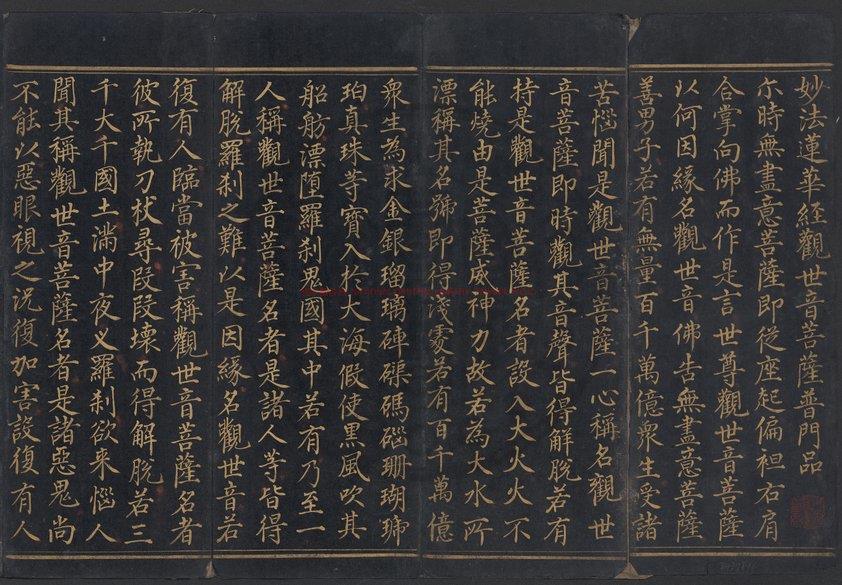 妙法蓮華經觀世音菩薩普門品
尒時無盡意菩薩即從座起偏袒右肩
合掌向佛而作是言世尊觀世音菩薩
以何因緣名觀世音佛告無盡意菩薩
善男子若有無量百千萬億衆生受諸
苦惱聞是觀世音菩薩一心稱名觀世
音菩薩即時觀其音聲皆得解脫若有
持是觀世音菩薩名者設入大火火不
能燒由是菩薩威神力故若為大水所
漂稱其名號即得淺處若有百千萬億
衆生為求金銀瑠璃硨磲碼碯珊瑚琥
珀真珠等寶入於大海假使黒風吹其
船舫漂堕羅刹鬼國其中若有乃至一
人稱觀世音菩薩名者是諸人等皆得
解脫羅刹之難以是因緣名觀世音若
復有人臨當被害稱觀世音菩薩名者
彼所執刀杖尋段段壞而得解脫若三
千大千國土滿中夜叉羅刹欲来惱人
聞其稱觀世音菩薩名者是諸惡鬼尚
不能以惡眼視之况復加害設復有人